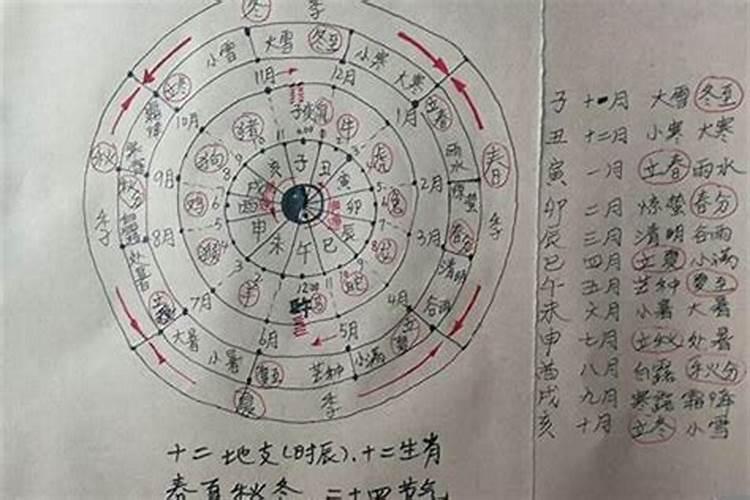 冬 季
小雪 大雪 冬至 小寒 大寒
立冬 11月 12月 立春
10月 子 1月
秋 猪 鼠 牛 虎 雨水 春
9月 狗 亥 子 丑 寅 2月 惊蛰
秋分 鸡 戌 酉 卯 兔
季 8月 猴 申 未 午 巳 辰 3月 春分 季
处暑 羊 12:00 蛇 清明
立秋 7月 午 4月 谷雨
大暑 6月 5月 立夏
小暑 夏至 芒种 小满
夏 季
子 十一月 大雪 冬至
丑 十二月 小寒 大寒
寅 一月 立春 雨水
卯 二月 惊蛰 春分
辰 三月 清明 谷雨
巳 四月 立夏 小满
午 五月 芒种 夏至
未 六月 小暑 大暑
申 七月 立秋 处暑
酉 八月 白露 秋分
戌 九月 寒露 霜降
亥 十月 立冬 小雪
十二地支(时辰)、十二生肖
春夏秋冬 二十四节气